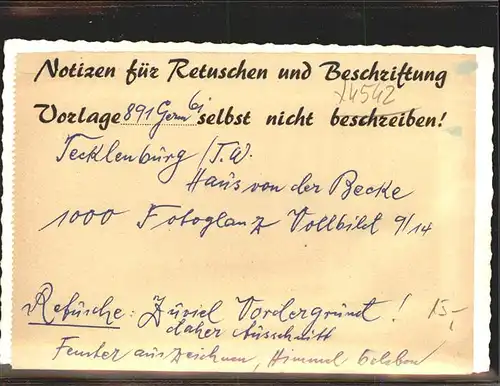 Notizen für Retuschen und Beschriftung
X4542
Vorlage 891 Germ 6 selbst nicht beschreiben!
Tecklenburg / T.W.
Haus von der Becke
1000 Fotoglanz Vollbild 9/14
Retusche: Zuviel Vordergrund! 15,-
daher Ausschnitt
Fenster auszeichnen, Himmel